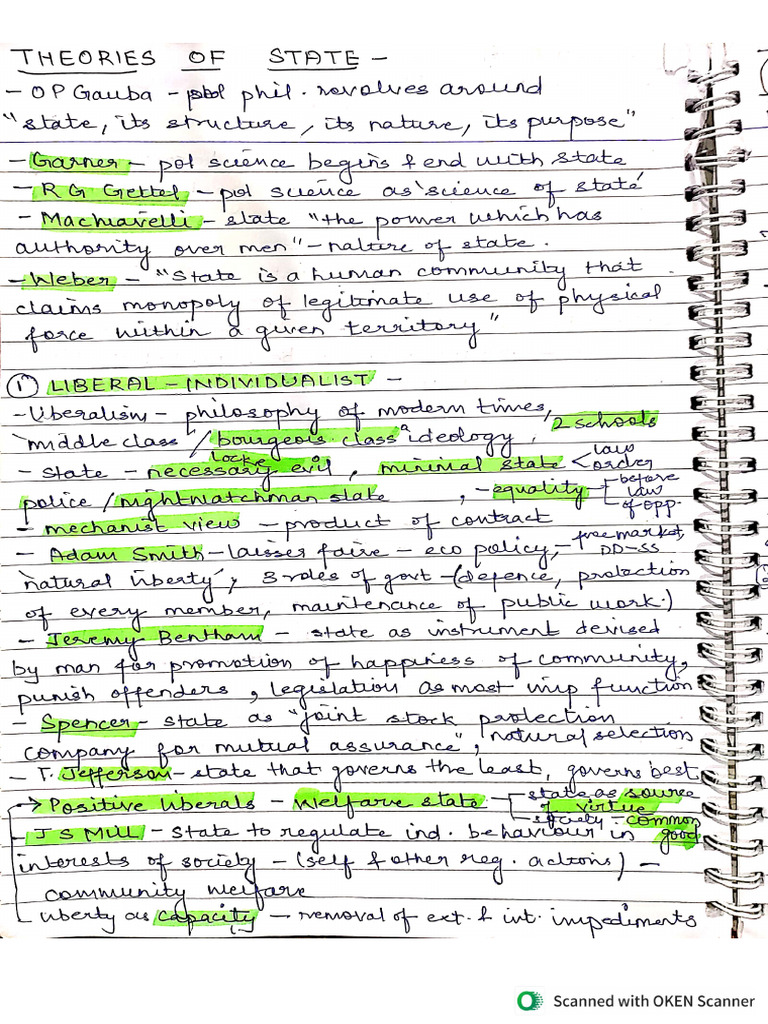 THEORIES OF STATE -
- OP Gauba - phil. revolves around
"state, its structure, its nature, its purpose"
- Garner - pol science begins & end with state
- R G Gettel - pol science as 'science of state'
- Machiavelli - state "the power which has
authority over men" - nature of state.
- Weber - "State is a human community that
claims monopoly of legitimate use of physical
force within a given territory"
① LIBERAL - INDIVIDUALIST -
- Liberalism - philosophy of modern times,
middle class / bourgeois class ideology, 2 schools
- state - necessary evil, minimal state < law order
Locke
police / nightwatchman state, - equality - before law
of opp.
- mechanist view - product of contract
- Adam Smith - laissez faire - eco policy, - free market, DD-SS
'natural liberty'; 3 roles of govt - (defence, protection
of every member, maintenance of public work.)
- Jeremy Bentham - state as instrument devised
by man for promotion of happiness of community,
punish offenders, legislation as most imp function
- Spencer - state as "joint stock protection
company for mutual assurance", 'natural selection
- T. Jefferson - state that governs the least, governs best
→ Positive liberals - Welfare state - state as source of virtue
society - common good
- J S Mill - State to regulate ind. behaviour in
interests of society - (self & other reg. actions) -
community welfare
liberty as capacity - removal of ext. & int. impediments
Scanned with OKEN Scanner